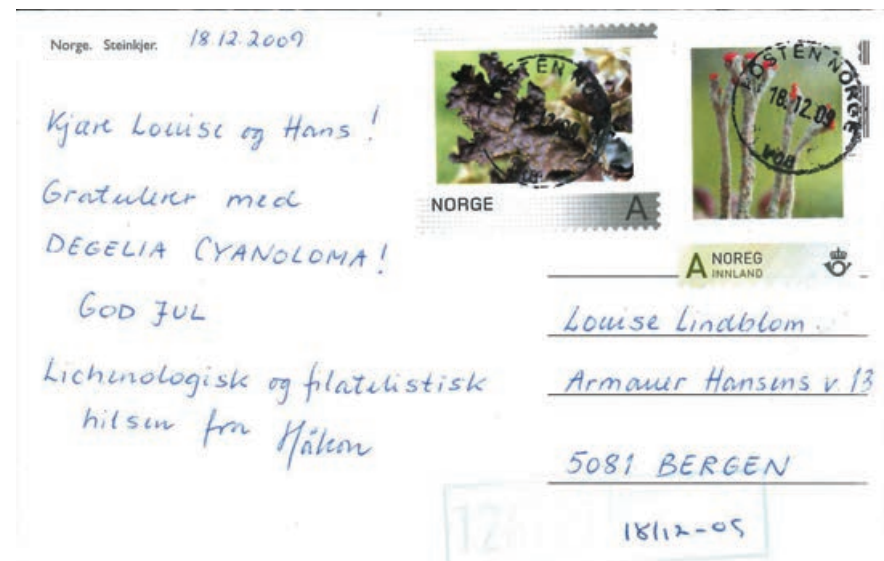 Norge. Steinkjer. 18.12.2009
Kjære Louise og Hans!
Gratulerer med
DEGELIA CYANOLOMA!
GOD JUL
Lichenologisk og filatelistisk
hilsen fra Håkon
NORGE A
POSTEN NORGE
18.12.09
A NOREG
INNLAND
Louise Lindblom
Armauer Hansens v. 13
5081 BERGEN
18/12-09